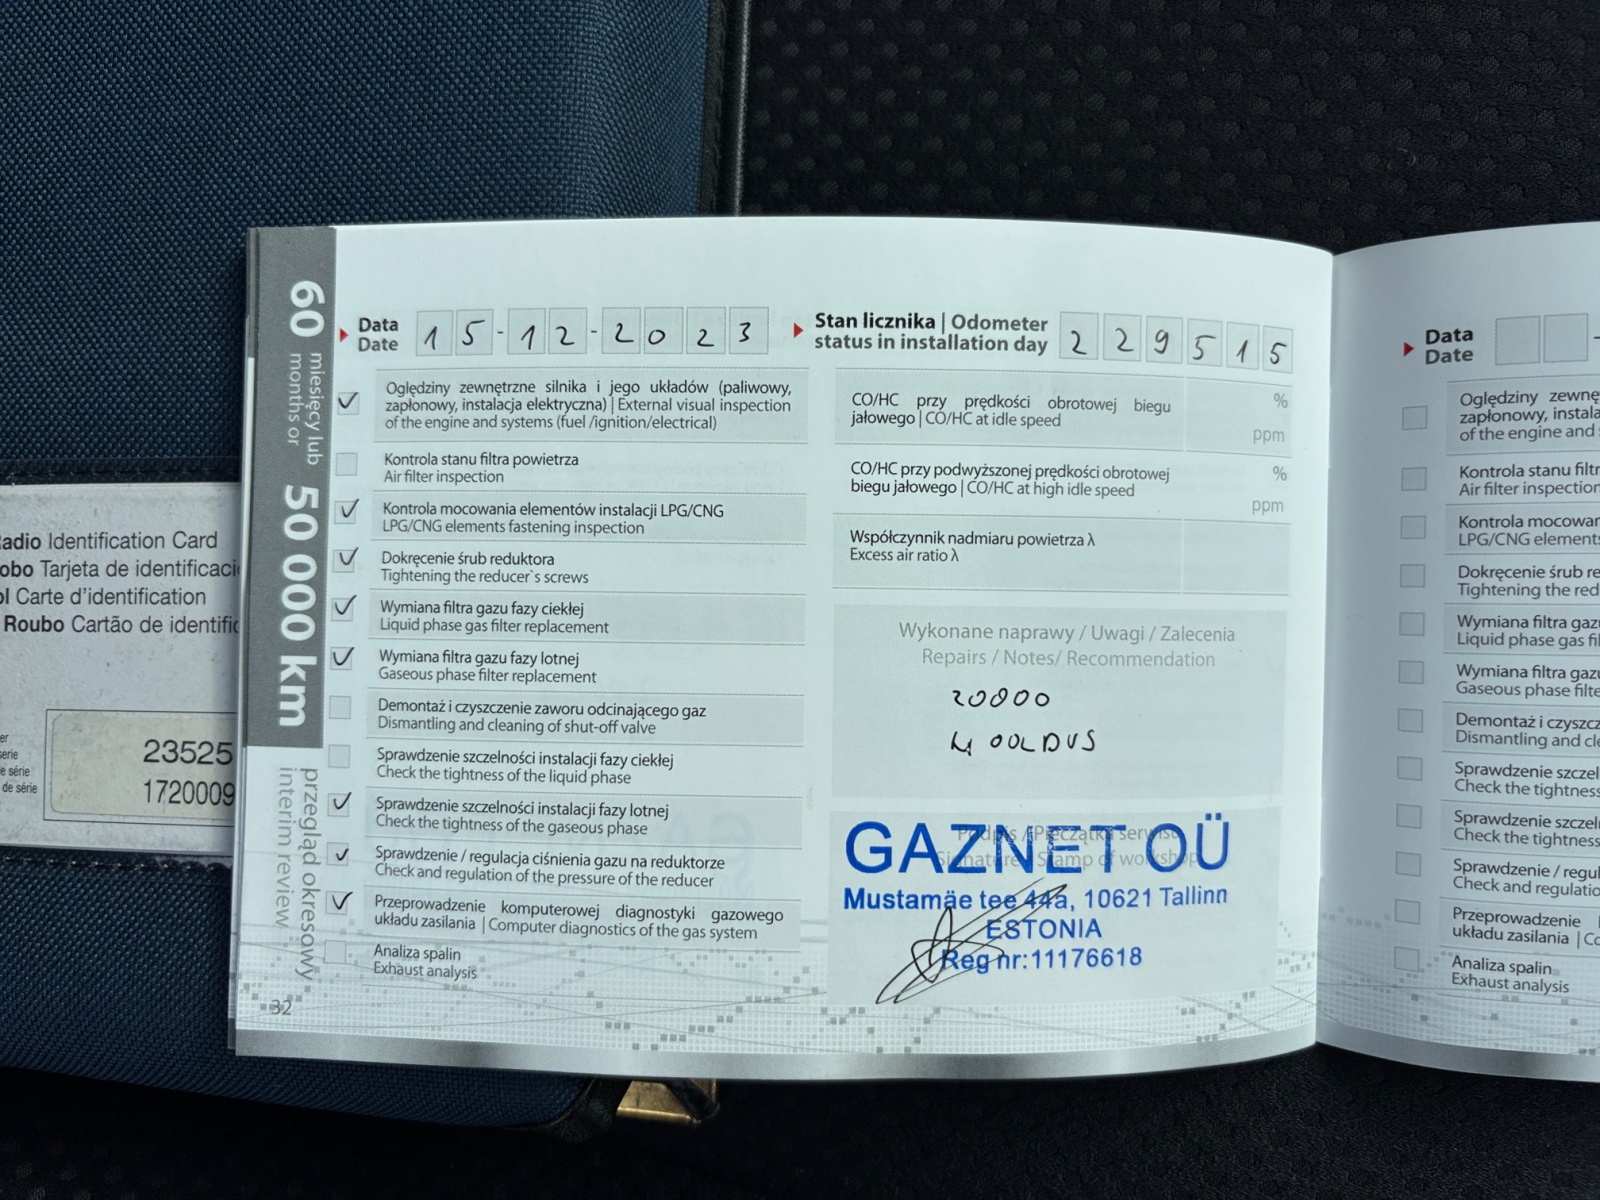 60 miesięcy lub months or 50 000 km
przegląd okresowy
interim review
Data
Date
15-12-2023
Stan licznika | Odometer
status in installation day
229515
Oględziny zewnętrzne silnika i jego układów (paliwowy,
zapłonowy, instalacja elektryczna) | External visual inspection
of the engine and systems (fuel /ignition/electrical)
Kontrola stanu filtra powietrza
Air filter inspection
Kontrola mocowania elementów instalacji LPG/CNG
LPG/CNG elements fastening inspection
Dokręcenie śrub reduktora
Tightening the reducer`s screws
Wymiana filtra gazu fazy ciekłej
Liquid phase gas filter replacement
Wymiana filtra gazu fazy lotnej
Gaseous phase filter replacement
Demontaż i czyszczenie zaworu odcinającego gaz
Dismantling and cleaning of shut-off valve
Sprawdzenie szczelności instalacji fazy ciekłej
Check the tightness of the liquid phase
Sprawdzenie szczelności instalacji fazy lotnej
Check the tightness of the gaseous phase
Sprawdzenie / regulacja ciśnienia gazu na reduktorze
Check and regulation of the pressure of the reducer
Przeprowadzenie komputerowej diagnostyki gazowego
układu zasilania | Computer diagnostics of the gas system
Analiza spalin
Exhaust analysis
32
CO/HC przy prędkości obrotowej biegu
jałowego | CO/HC at idle speed
%
ppm
CO/HC przy podwyższonej prędkości obrotowej
biegu jałowego | CO/HC at high idle speed
%
ppm
Współczynnik nadmiaru powietrza λ
Excess air ratio λ
Wykonane naprawy / Uwagi / Zalecenia
Repairs / Notes/ Recommendation
20000
HOOLDUS
Podpis / Pieczątka serwisu
Signature / Stamp of workshop
GAZNET OÜ
Mustamäe tee 44a, 10621 Tallinn
ESTONIA
Reg nr:11176618
Data
Date
Oględziny zewnę
zapłonowy, instala
of the engine and
Kontrola stanu filtr
Air filter inspection
Kontrola mocowar
LPG/CNG elements
Dokręcenie śrub re
Tightening the red
Wymiana filtra gazu
Liquid phase gas fil
Wymiana filtra gazu
Gaseous phase filte
Demontaż i czyszcz
Dismantling and cle
Sprawdzenie szczel
Check the tightness
Sprawdzenie szczeln
Check the tightness
Sprawdzenie / regul
Check and regulation
Przeprowadzenie
układu zasilania | Co
Analiza spalin
Exhaust analysis
adio Identification Card
obo Tarjeta de identificaci
ol Carte d'identification
Roubo Cartão de identific
er
serie
e série
de série
23525
1720009